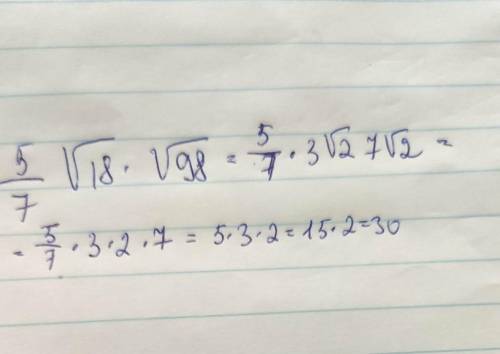 5/7 √18 · √98 = 5/7 · 3√2 7√2 =
= 5/7 · 3 · 2 · 7 = 5·3·2 = 15·2=30